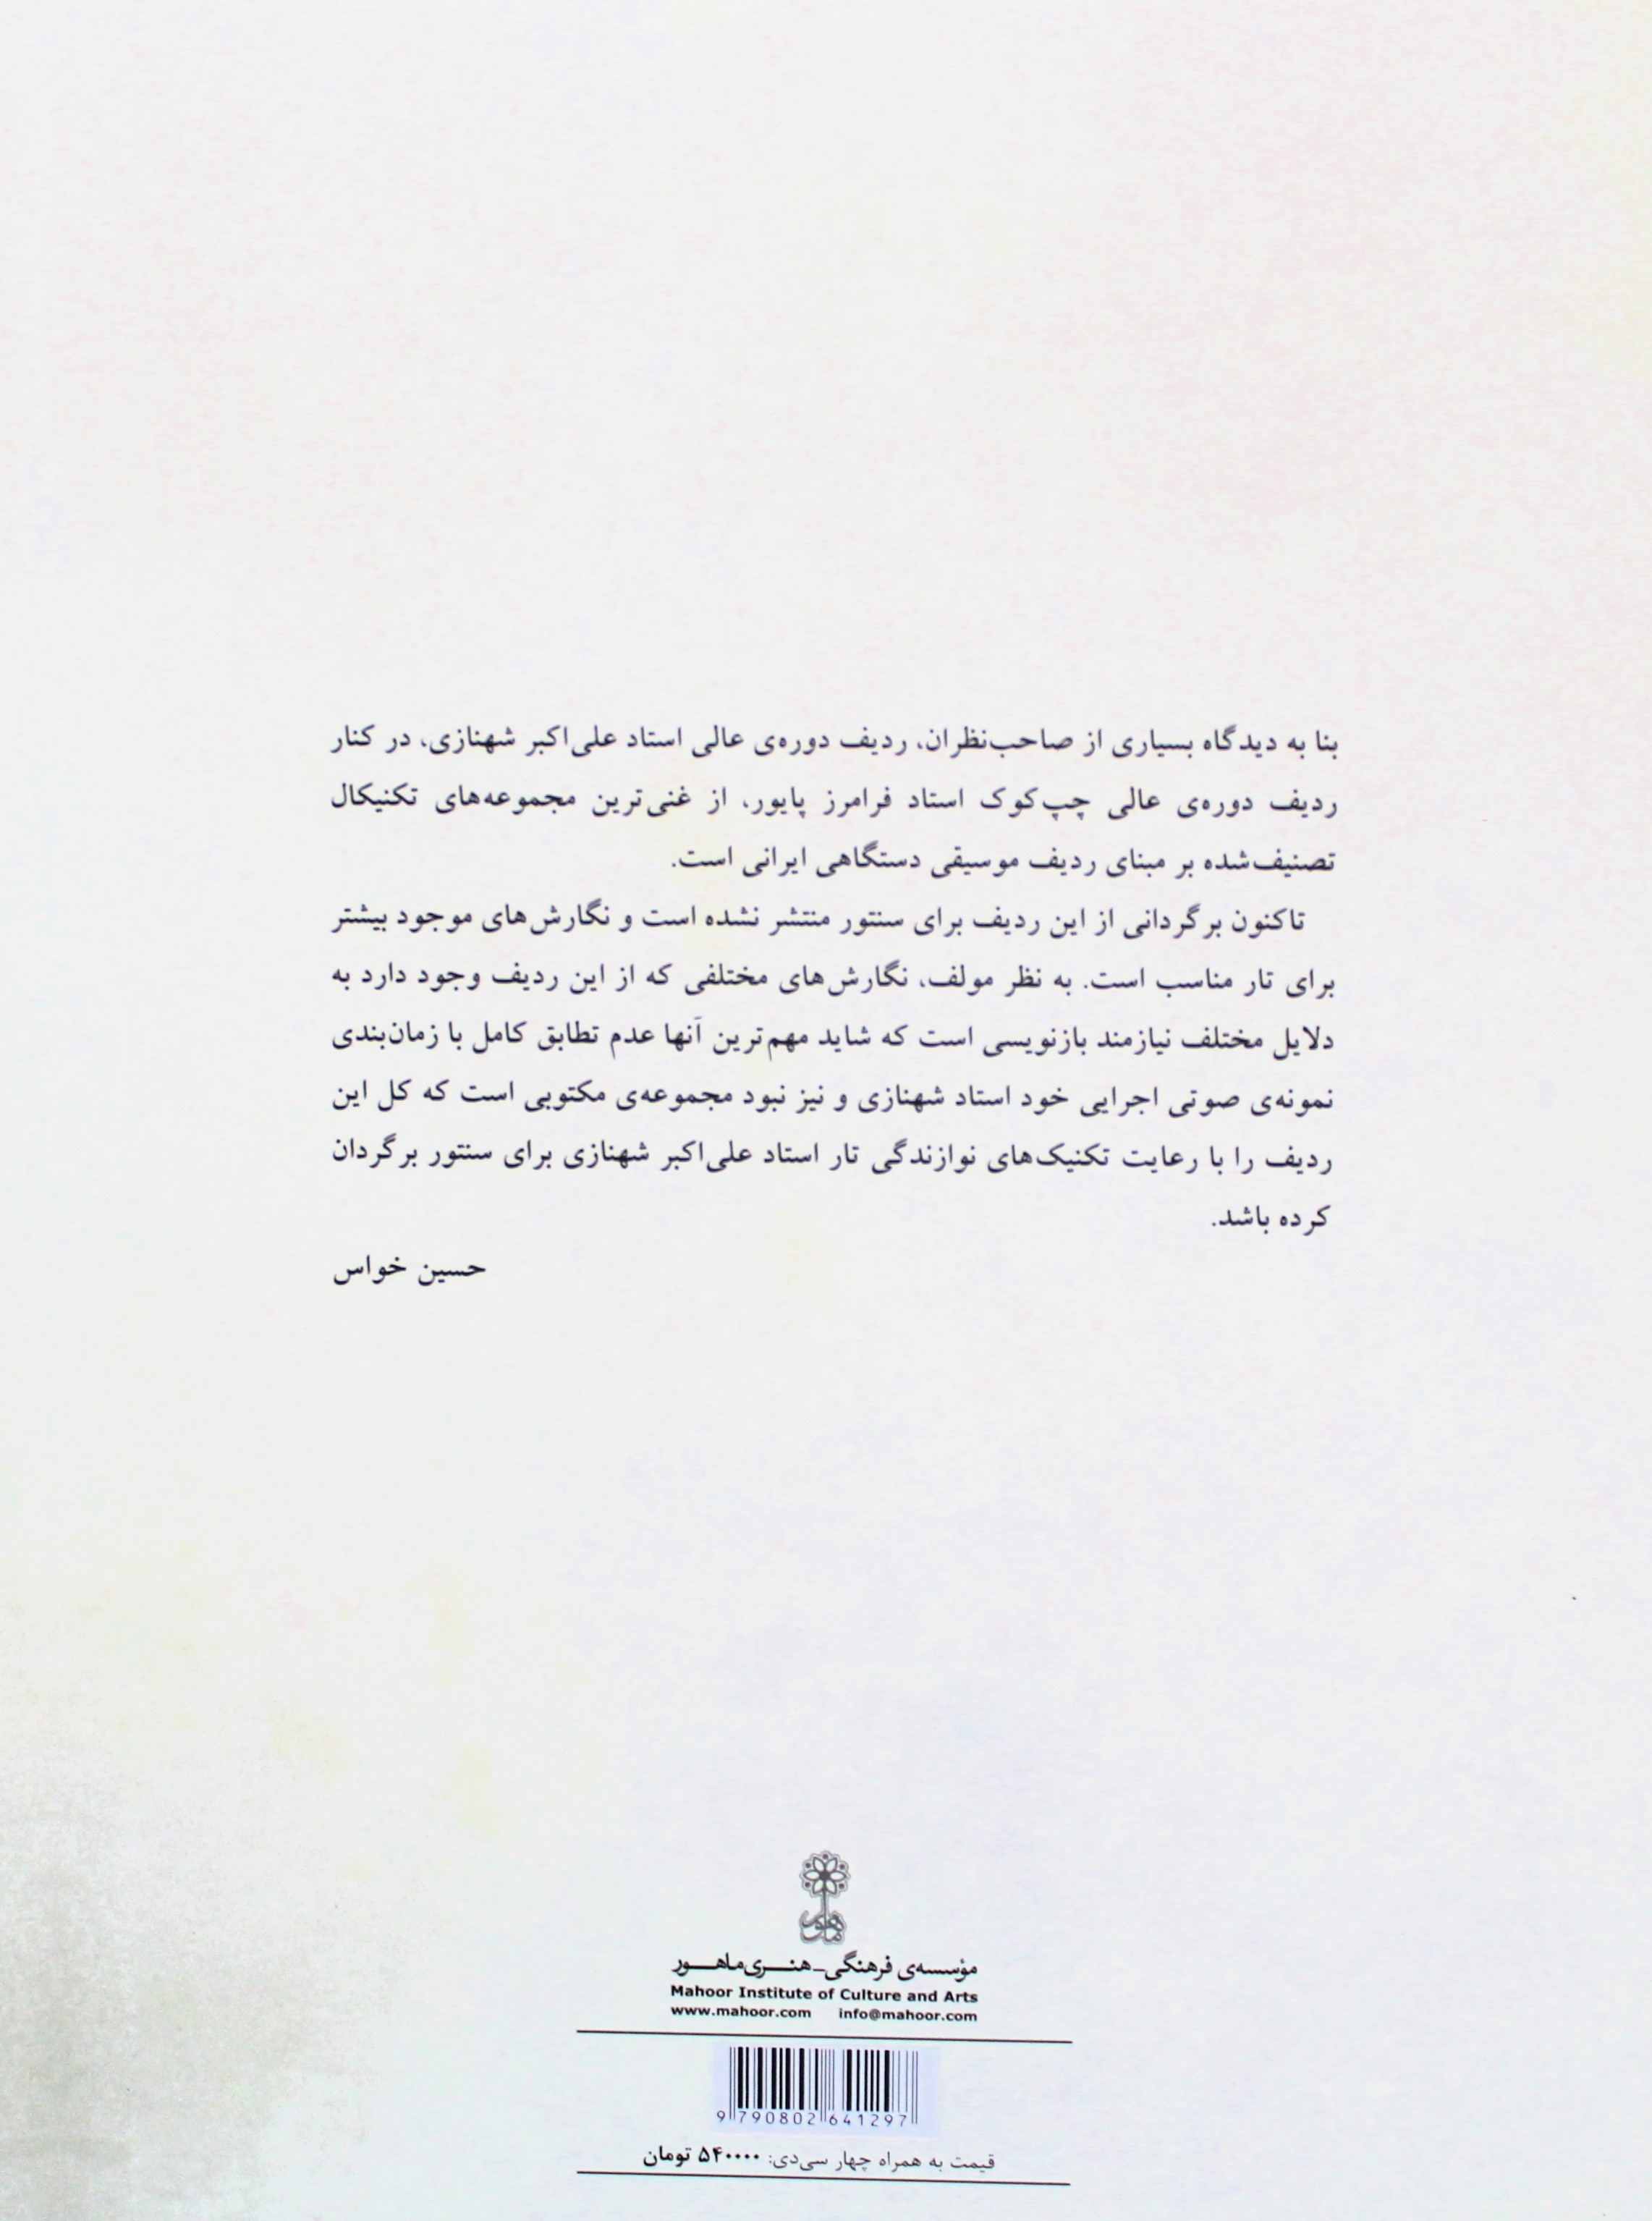 بنا به دیدگاه بسیاری از صاحب‌نظران، ردیف دوره‌ی عالی استاد علی‌اکبر شهنازی، در کنار
ردیف دوره‌ی عالی چپ‌کوک استاد فرامرز پایور، از غنی‌ترین مجموعه‌های تکنیکال
تصنیف‌شده بر مبنای ردیف موسیقی دستگاهی ایرانی است.
تاکنون برگردانی از این ردیف برای سنتور منتشر نشده است و نگارش‌های موجود بیشتر
برای تار مناسب است. به نظر مولف، نگارش‌های مختلفی که از این ردیف وجود دارد به
دلایل مختلف نیازمند بازنویسی است که شاید مهم‌ترین آنها عدم تطابق کامل با زمان‌بندی
نمونه‌ی صوتی اجرایی خود استاد شهنازی و نیز نبود مجموعه‌ی مکتوبی است که کل این
ردیف را با رعایت تکنیک‌های نوازندگی تار استاد علی‌اکبر شهنازی برای سنتور برگردان
کرده باشد.
حسین خواس
ماهور
مؤسسه‌ی فرهنگی_هنری ماهور
Mahoor Institute of Culture and Arts
www.mahoor.com info@mahoor.com
9 790802 641297
قیمت به همراه چهار سی‌دی: ۵۴۰۰۰۰ تومان